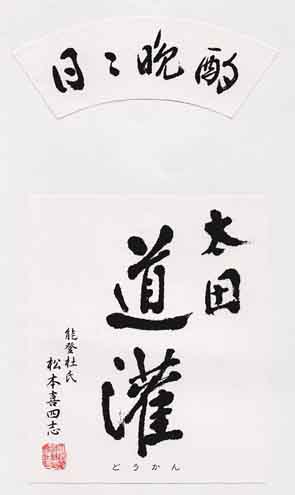 日々晩酌
太田
道灌
どうかん
能登杜氏
松本喜四志